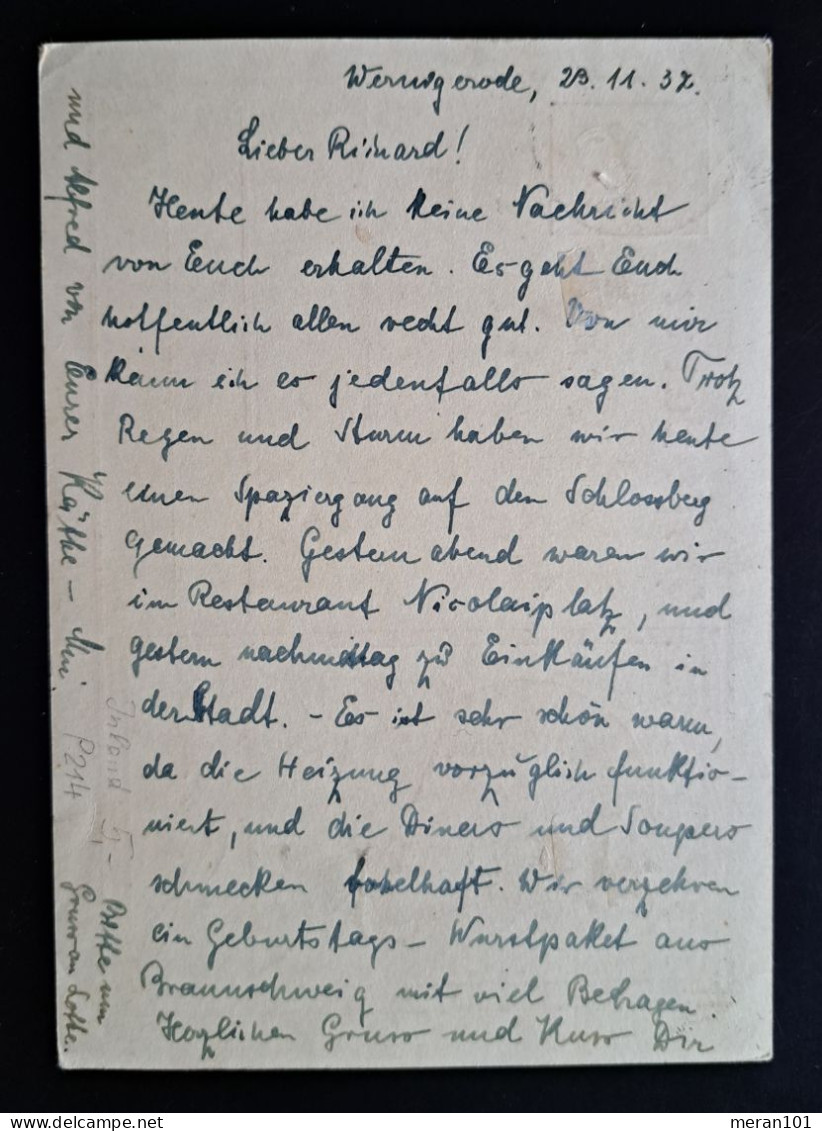 Wernigerode, 23. 11. 37.
Lieber Richard!
Heute habe ich keine Nachricht
von Euch erhalten. Es geht Euch
hoffentlich allen recht gut. Von mir
kann ich es jedenfalls sagen. Trotz
Regen und Sturm haben wir heute
einen Spaziergang auf den Schlossberg
gemacht. Gestern abend waren wir
im Restaurant Nicolaiplatz, und
gestern nachmittag zu Einkäufen in
der Stadt. – Es ist sehr schön warm,
da die Heizung vorzüglich funktio-
niert, und die Diners und Soupers
schmecken fabelhaft. Wir verzehren
ein Geburtstags-Wurstpaket aus
Braunschweig mit viel Behagen.
Herzlichen Gruss und Kuss Dir
und Alfred von Eurer Käthe – Mi.
Bitte um
Gruss an Lotte.
P214
5,-
meran101